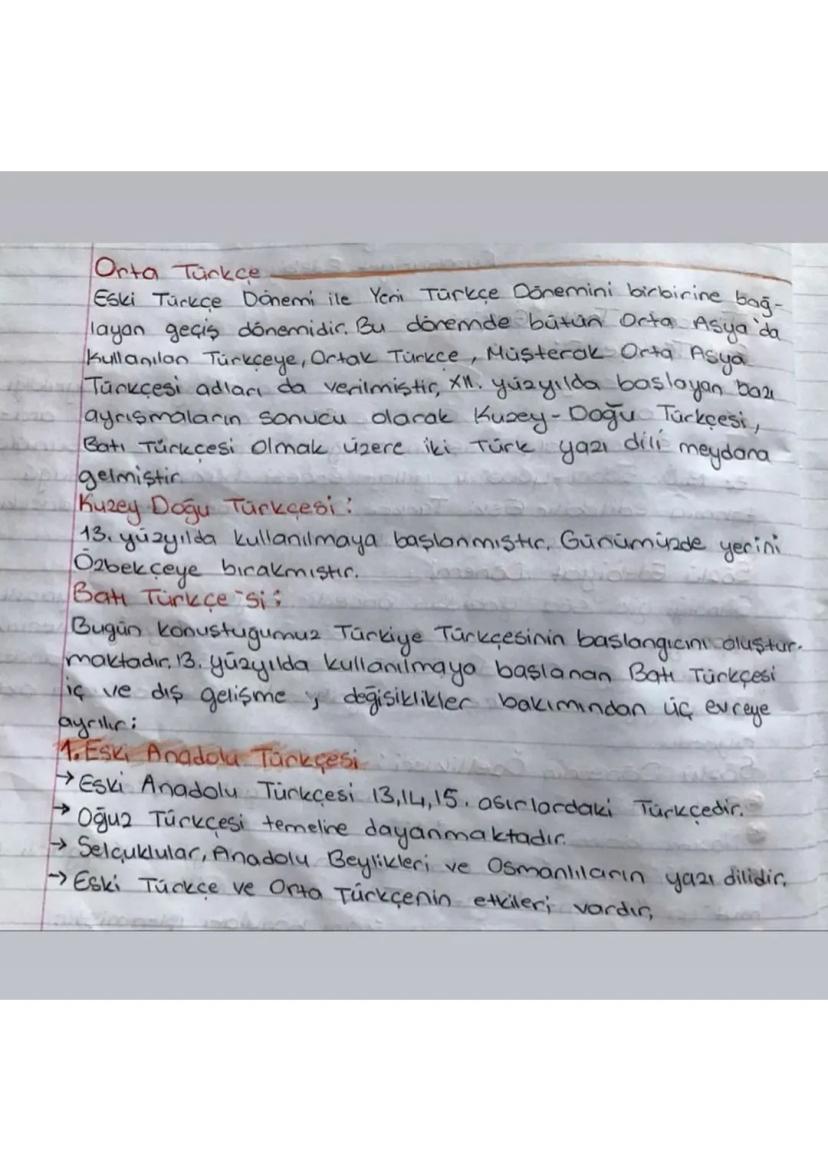 Orta Türkçe
Eski Türkçe Dönemi ile Yeni Türkçe Dönemini birbirine bağ-
layan geçiş dönemidir. Bu dönemde bütün Orta Asya'da
Kullanılan Türkçeye, Ortak Türkçe, Müşterek Orta Asya
Türkçesi adları da verilmiştir, XII. yüzyılda başlayan bazı
ayrışmaların sonucu olarak Kuzey-Doğu Türkçesi,
Batı Türkçesi olmak üzere iki Türk yazı dili meydana
gelmiştir.
Kuzey Doğu Türkçesi:
13. yüzyılda kullanılmaya başlanmıştır. Günümüzde yerini
Özbekçeye bırakmıştır.
Batı Türkçe'si:
Bugün konuştuğumuz Türkiye Türkçesinin başlangıcını oluştur-
maktadır. 13. yüzyılda kullanılmaya başlanan Batı Türkçesi
iç ve dış gelişme, değişiklikler bakımından üç evreye
ayrılır:
1. Eski Anadolu Türkçesi
→ Eski Anadolu Türkçesi 13,14,15. asırlardaki Türkçedir.
→ Oğuz Türkçesi temeline dayanmaktadır.
→ Selçuklular, Anadolu Beylikleri ve Osmanlıların yazı dilidir.
→ Eski Türkçe ve Orta Türkçenin etkileri vardır,